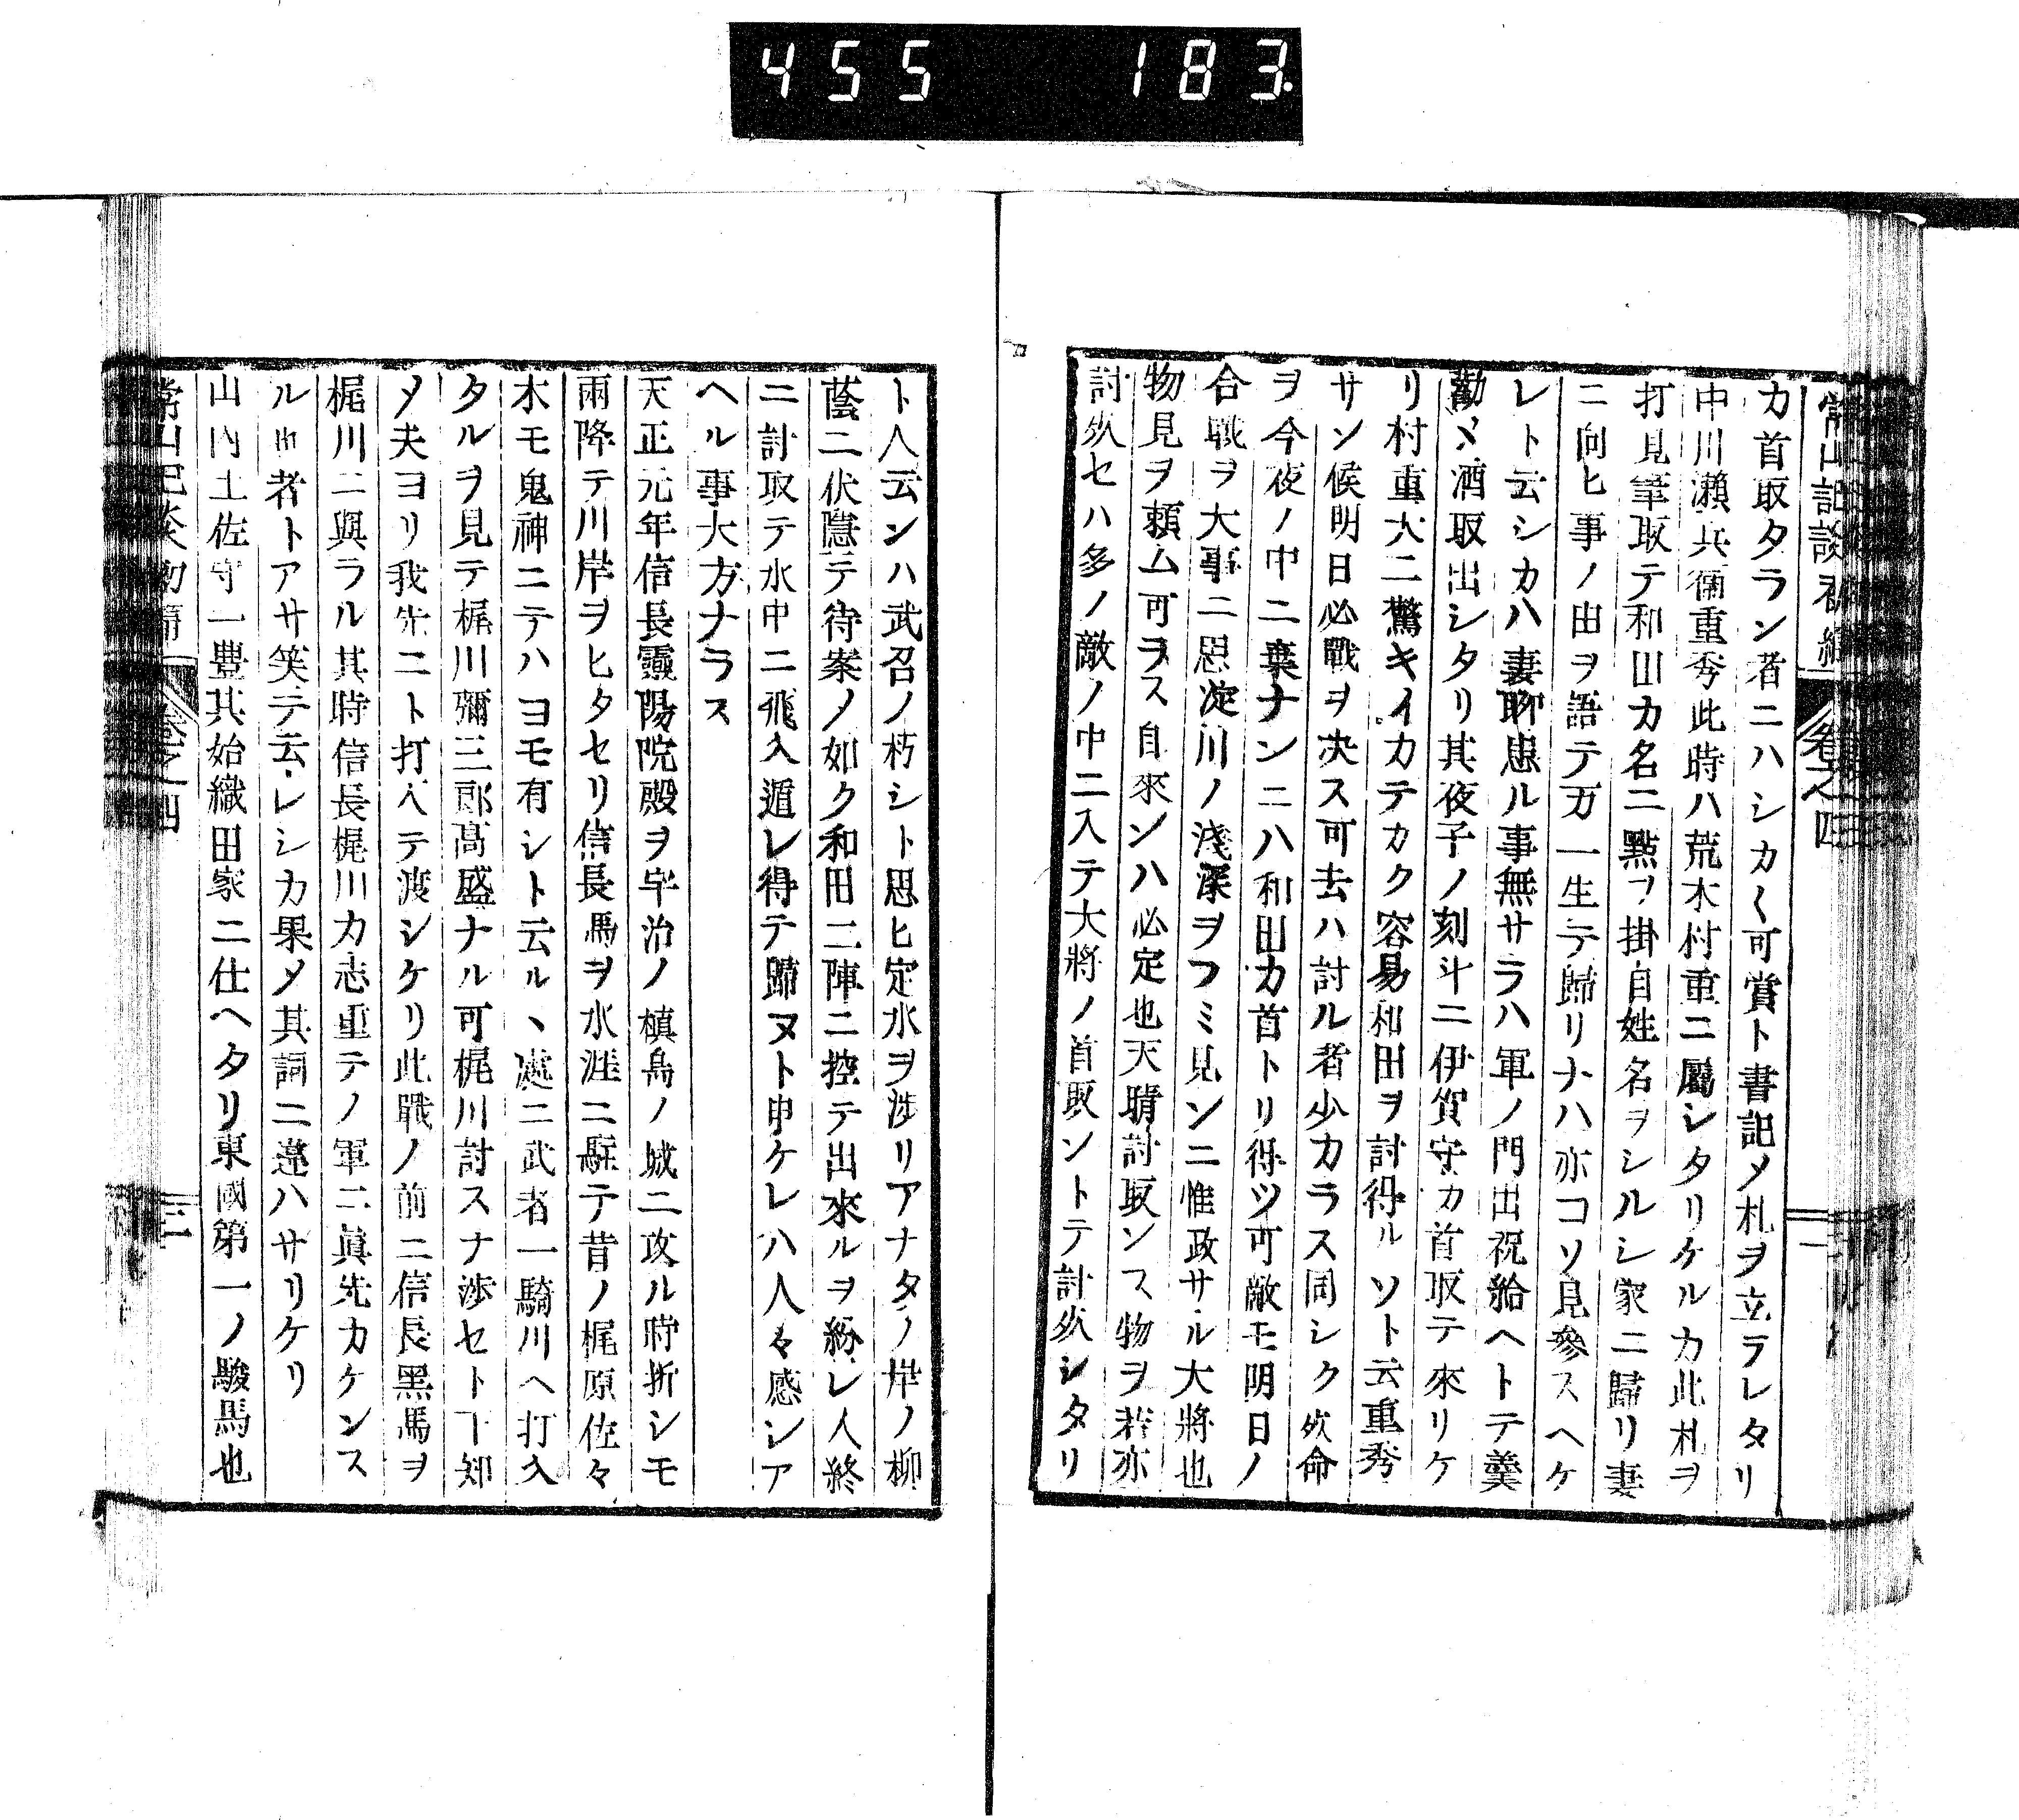 455 183.
常山記談 卷之四
カ首取タラン者ニハシカ〱可賞ト書記メ札ヲ立ラレタリ
中川瀨兵衞重秀此時ハ荒木村重ニ屬シタリケルカ此札ヲ
打見筆取テ和田カ名ニ點ヲ掛自姓名ヲシルシ家ニ歸リ妻
ニ向ヒ事ノ由ヲ語テ万一生テ歸リナハ亦コソ見參スヘケ
レト云シカハ妻聊患ル事無サラハ軍ノ門出祝給ヘトテ羹
勸メ酒取出シタリ其夜子ノ刻斗ニ伊賀守カ首取テ來リケ
リ村重大ニ驚キイカテカク容易和田ヲ討得ルソト云重秀
サン候明日必戰ヲ决ス可去ハ討ル者少カラス同シク㱔命
ヲ今夜ノ中ニ棄ナンニハ和田カ首トリ得ツ可敵モ明日ノ
合戰ヲ大事ニ思淀川ノ淺深ヲフミ見ンニ惟政サル大將也
物見ヲ賴ム可ラス自來ンハ必定也天晴討取ンス物ヲ若亦
討㱔セハ多ノ敵ノ中ニ入テ大將ノ首取ントテ討㱔シタリ
ト人云ンハ武召ノ朽シト思ヒ定水ヲ渉リアナタノ岸ノ柳
蔭ニ伏隱テ待案ノ如ク和田二陣ニ控テ出來ルヲ紛レ人終
ニ討取テ水中ニ飛入遁レ得テ歸ヌト申ケレハ人々感シア
ヘル事大方ナラス
天正元年信長靈陽院殿ヲ宇治ノ槇島ノ城ニ攻ル時折シモ
雨降テ川岸ヲヒタセリ信長馬ヲ水涯ニ駐テ昔ノ梶原佐々
木モ鬼神ニテハヨモ有シト云ル丶處ニ武者一騎川ヘ打入
タルヲ見テ梶川彌三郎高盛ナル可梶川討スナ渉セト下知
メ夫ヨリ我先ニト打入テ渡シケリ此戰ノ前ニ信長黑馬ヲ
梶川ニ與ラル其時信長梶川カ志重テノ軍ニ眞先カケンス
ル由者トアサ笑テ云レシカ果メ其詞ニ違ハサリケリ
山內土佐守一豊其始織田家ニ仕ヘタリ東國第一ノ駿馬也
常山記談 卷之四 三